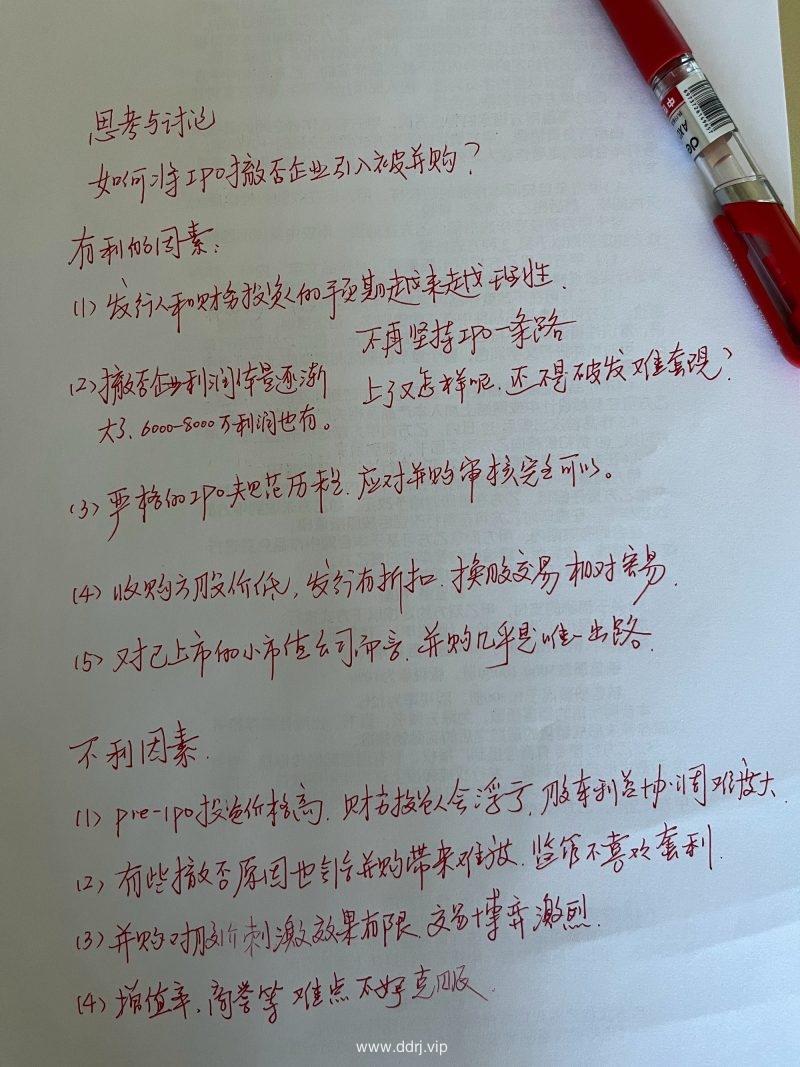 思考与讨论
如何将IPO撤否企业引入被并购?
有利的因素:
(1) 发行人和财务投资人的预期越来越理性.
不再坚持IPO一条路
上了又怎样呢.还不是破发难套现?
(2) 撤否企业利润体量逐渐
大了、6000-8000万利润也有。
(3) 严格的IPO规范历程.应对并购审核完全可以。
(4) 收购方股价低,发行有折扣.换股交易相对容易.
(5) 对已上市的小市值公司而言.并购几乎是唯一出路.
不利因素.
(1) pre-ipo投资价格高.财务投资人会浮亏.股东利益协调难度大.
(2) 有些撤否原因也会给并购带来难被.监管不喜欢套利.
(3) 并购对股价刺激效果有限.交易博弈激烈.
(4) 增值率、商誉等难点不好克服.
www.ddrj.vip